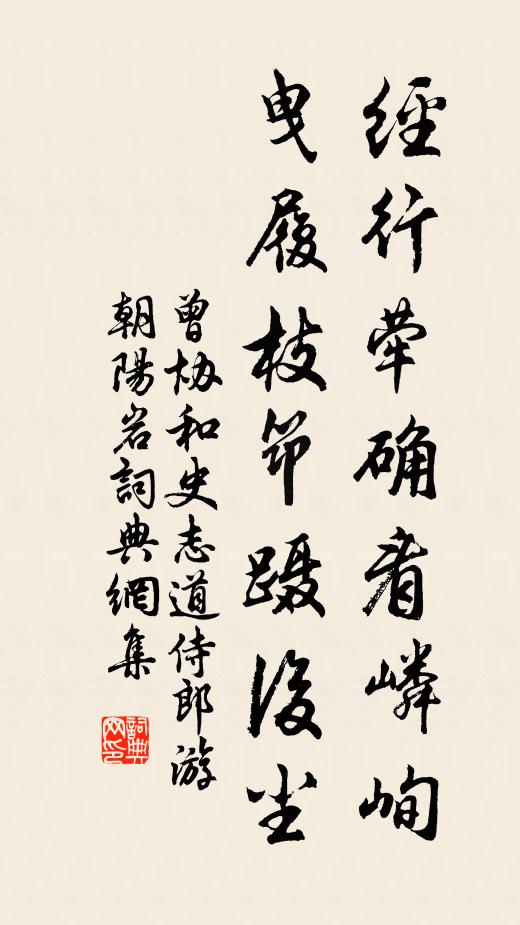 經行荦确看嶙峋
曳履枝筇蹑後尘
曾协和史志道侍郎游
朝陽岩詞典網集
詞典网印